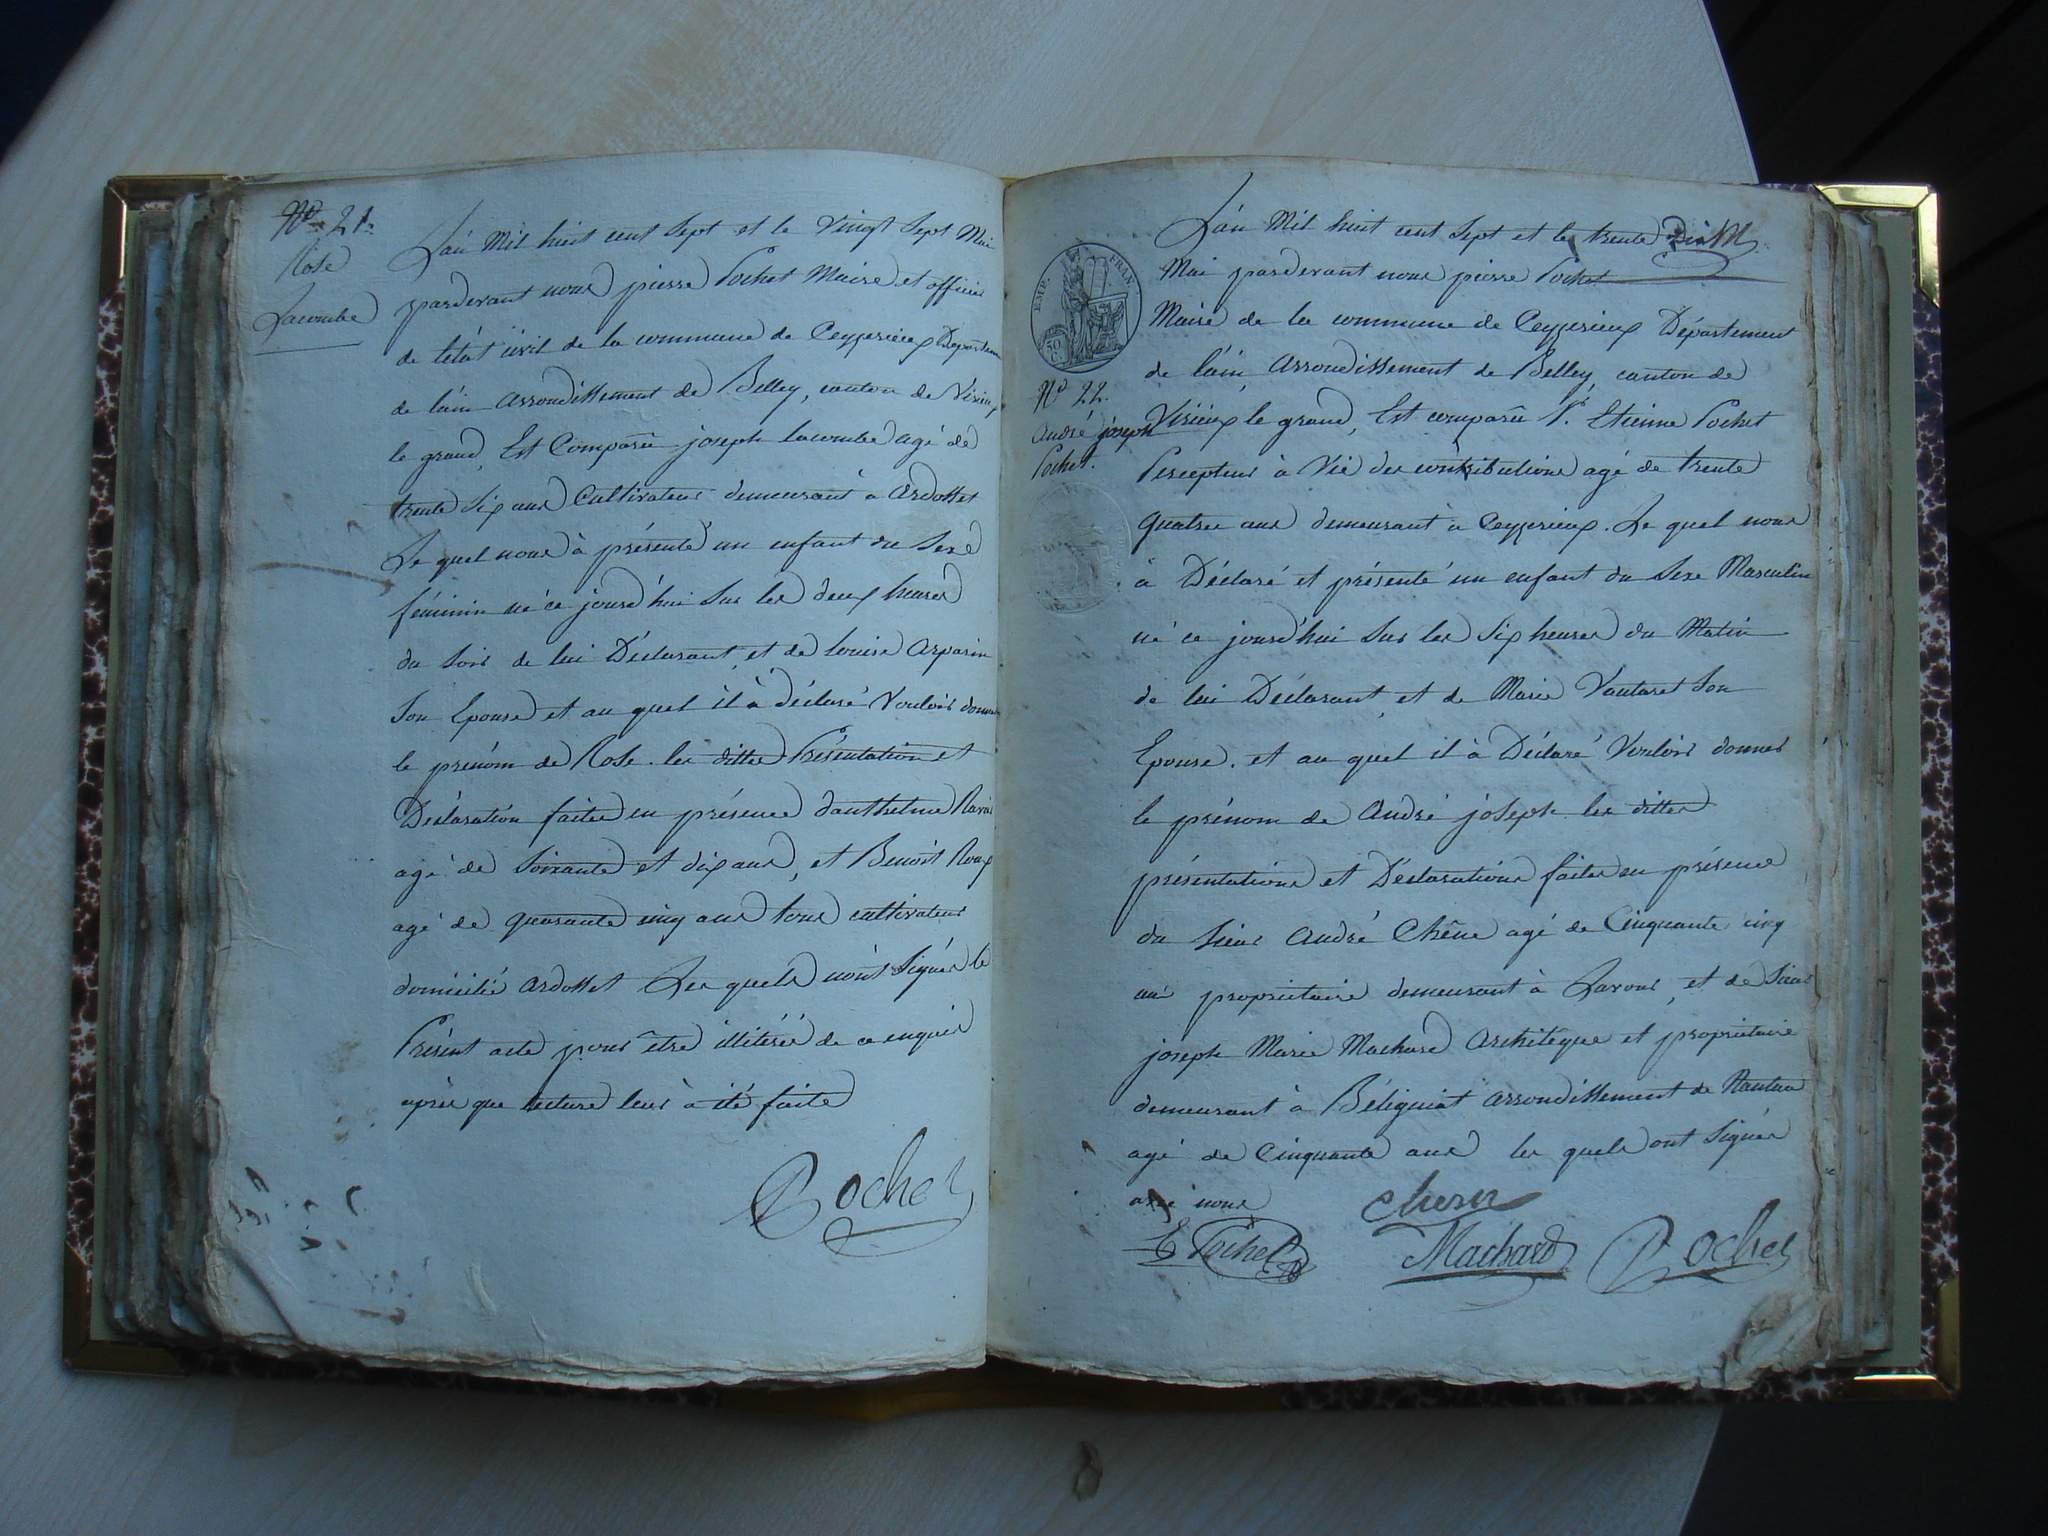 N.o 21.
Rose
Lacombe
L'an Mil huit cent Sept et le Vingt Sept Mai
pardevant nous pierre Pochet Maire et officier
de l'état civil de la commune de Ceyzerieux Departement
de l'ain arrondissement de Belley, canton de Virieux
le grand, Est Comparû joseph lacombe agé de
trente Six ans Cultivateur demeurant à Ardosset
Le quel nous à présenté un enfant du Sexe
féminin né ce jourd'hui Sur les deux heures
du Soir de lui Déclarant, et de louise Arparin
Son Epouse et au quel il à déclaré Vouloir donner
le prénom de Rose. les dittes Présentation et
Déclaration faites en présence d'anthelme
agé de Soixante et dix ans, et Benoit Roux
agé de quarante cinq ans tous cultivateur
domicilié Ardosset Les quels n'ont Signés le
Présent acte pour être illitéré de ce enquis
après que lecture leur à été faite
Pochet
EMP. FRAN.
50 C.
N.o 22.
André joseph
Pochet.
L'an Mil huit cent Sept et le trente
Mai pardevant nous pierre Pochet
Maire de la commune de Ceyzerieux Département
de l'ain, arrondissement de Belley, canton de
Virieux le grand, Est comparû Sr. Etienne Pochet
Percepteur à Vie des contributions agé de trente
quatre ans demeurant à Ceyzerieux. Le quel nous
à Déclaré et présenté un enfant du Sexe Masculin
né ce jourd'hui Sur les Six heures du Matin
de lui Déclarant, et de Marie Vautaret Son
Epouse. et au quel il à Déclaré Vouloir donner
le prénom de André joSeph. les dittes
présentations et Déclarations faites en présence
du Sieur André Chêne agé de Cinquante cinq
ans propriétaire demeurant à Lavour, et de Sieur
joseph Marie Machard Architèque et propriétaire
demeurant à Béligniat arrondissement de Nantua
agé de Cinquante ans les quels ont Signés
avec nous
chesne
E Pochet Machard Pochet